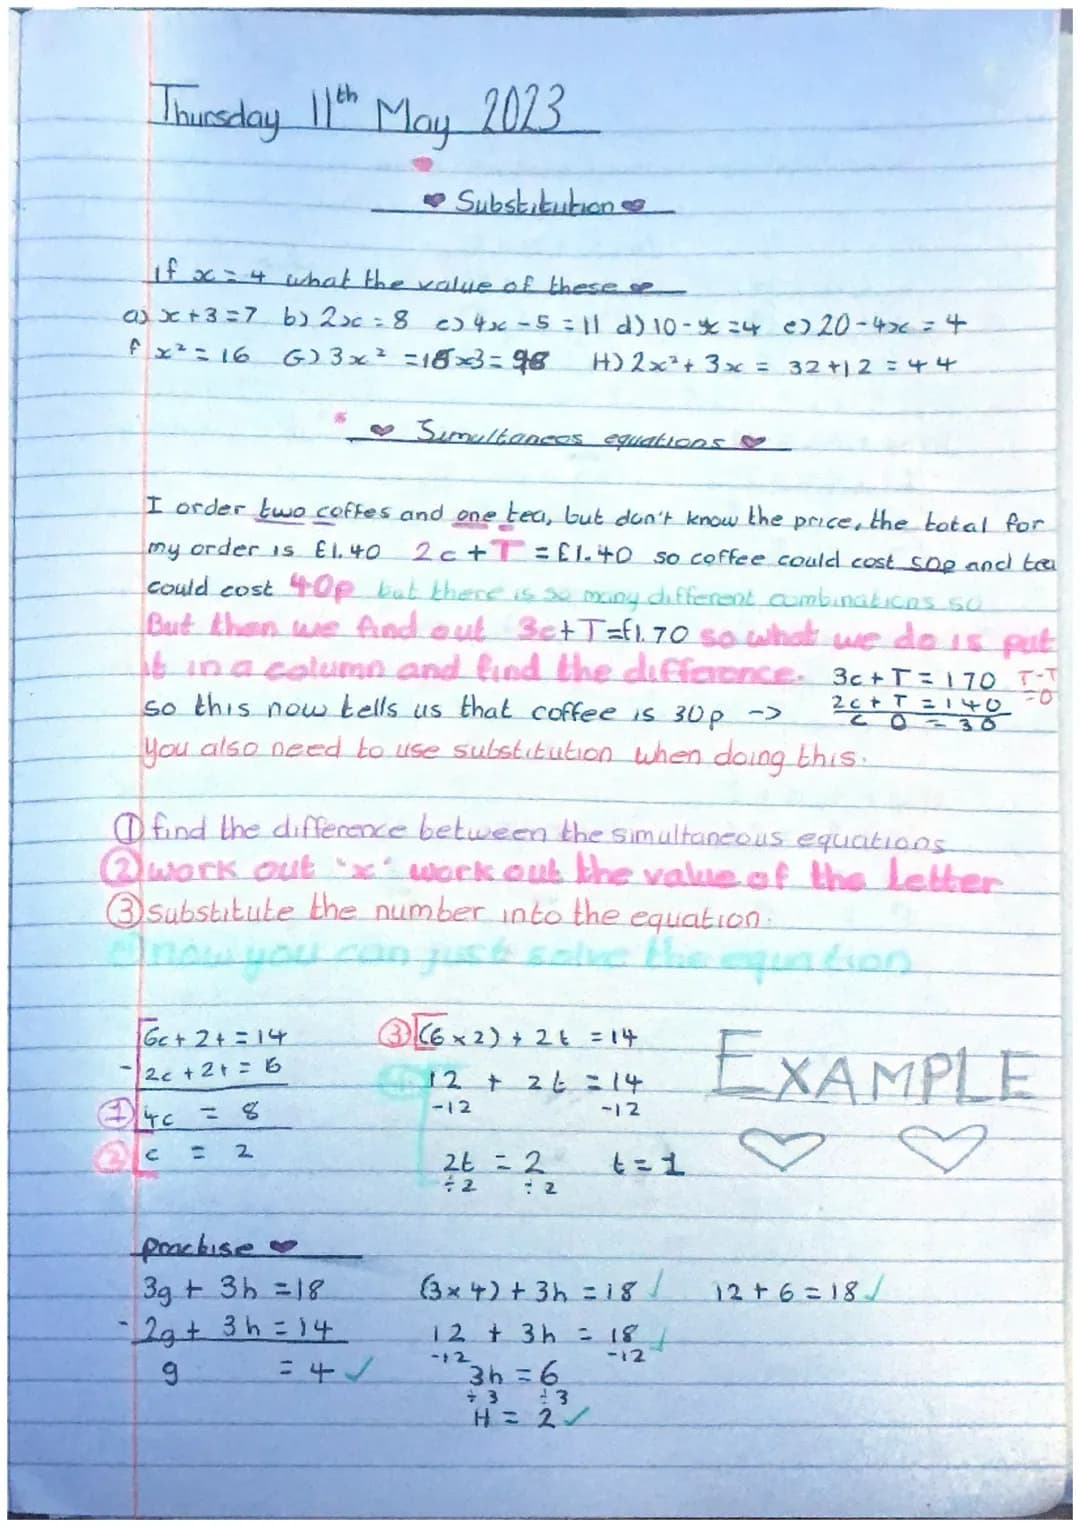 Thursday 11th May 2023
Substitution
if x = 4 what the value of these
a) x + 3 = 7 b) 2x = 8 c) 4x - 5 = 11 d) 10 - x = 4 e) 20 - 4x = 4
f x² = 16 G) 3x² = 16x3 = 48 H) 2x² + 3x = 32 + 12 = 44
Simultaneos equations
I order two coffes and one tea, but don't know the price, the total for
my order is £1.40 2c + T = £1.40 so coffee could cost 50p and tea
could cost 40p but there is so many different combinations so
But then we find out 3c + T = £1.70 so what we do is put
it in a column and find the difference. 3c + T = 170 T-T
2c + T = 140 =0
so this now tells us that coffee is 30p -> c 0 = 30
You also need to use substitution when doing this.
① find the difference between the simultaneous equations
② work out "x" work out the value of the letter
③ substitute the number into the equation.
④ now you can just solve the equation
6c + 2t = 14 ③ (6 x 2) + 2t = 14 EXAMPLE
- 2c + 2t = 6 12 + 2t = 14
① 4c = 8 -12 -12
② c = 2 2t = 2 t = 1
÷2 ÷2
practise
3g + 3h = 18 (3 x 4) + 3h = 18 ✓ 12 + 6 = 18 ✓
- 2g + 3h = 14 12 + 3h = 18 ✓
-12 -12
g = 4 ✓ 3h = 6
÷3 ÷3
H = 2 ✓